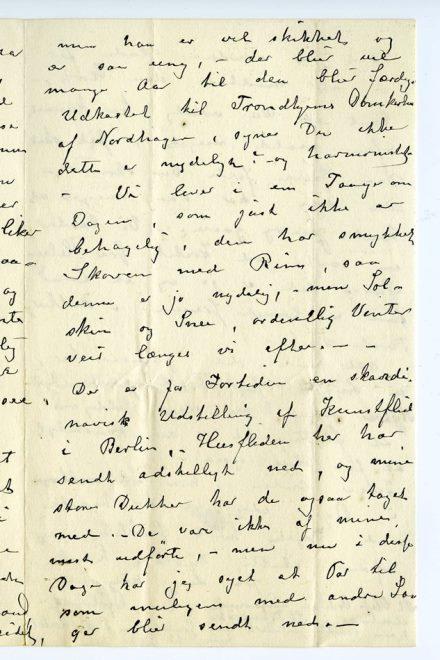 men han er vel skikket og
er saa ung, – der blir vel
mange Aar til den blir færdig.
Udkastet til Trondhjems Domkirke
af Nordhagen, synes De ikke
dette er nydeligt? – og harmonisk
– Vi lever i en Taage om
Dagen, som just ikke er
behagelig, den har smykket
Skoven med Rim, saa
denne er jo nydelig, – men Sol-
skin og Snee, ordentlig Vinter
veir længes vi efter. – –
Der er for Tiden en skandi-
navisk Udstilling af Kunstflid
i Berlin, – Husfliden her har
sendt adskilligt ned, og mine
store Dukker har de ogsaa taget
med. – De var ikke af mine
mest udførte, – men nu i disse
Dage har jeg syet et Par til
som muligens med andre
ger blir sendt ned. –